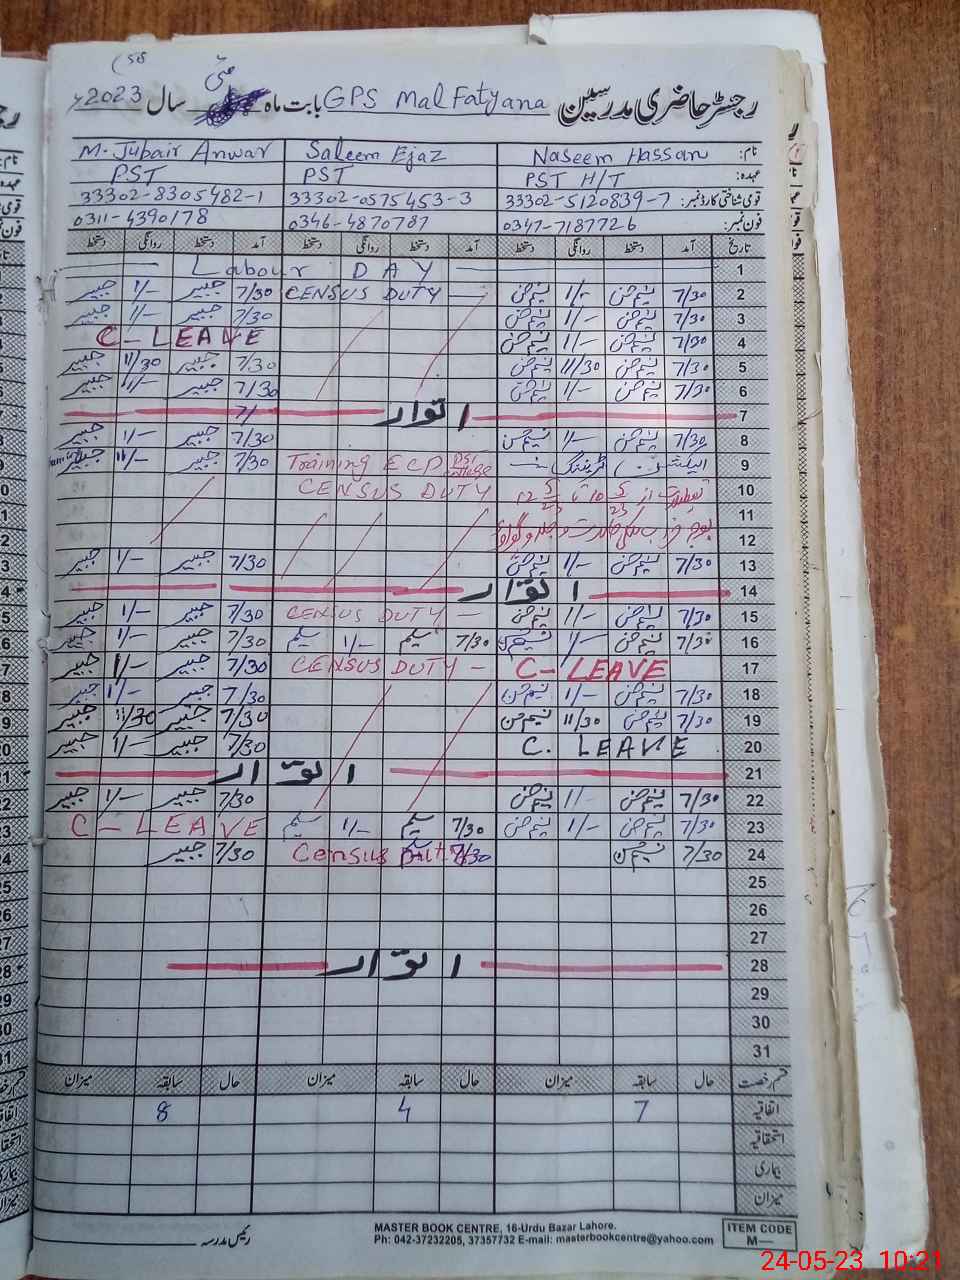 رجسٹر حاضری مدرسین GPS Mal Fatyana بابت ماہ مئی سال 2023ء
نام: Naseem Hassan Saleem Ejaz M. Jubair Anwar
عہدہ: PST H/T PST PST
قومی شناختی کارڈ نمبر: 33302-5120839-7 33302-0575453-3 33302-8305482-1
فون نمبر: 0347-7187726 0346-4870787 0311-4390178
تاریخ آمد دستخط روانگی دستخط آمد دستخط روانگی دستخط آمد دستخط روانگی دستخط
1 Labour DAY
2 7/30 نسیم حسن 1/- نسیم حسن CENSUS DUTY 7/30 جبیر 1/- جبیر
3 7/30 نسیم حسن 1/- نسیم حسن 7/30 جبیر 1/- جبیر
4 7/30 نسیم حسن 1/- نسیم حسن C-LEAVE
5 7/30 نسیم حسن 11/30 نسیم حسن 7/30 جبیر 11/30 جبیر
6 7/30 نسیم حسن 1/- نسیم حسن 7/30 جبیر جبیر
7 اتوار
8 7/30 نسیم حسن 1/- نسیم حسن 7/30 جبیر 1/- جبیر
9 الیکشن ٹریننگ Training ECP 7/30 جبیر جبیر
10 تعطیلات از 10 5/23 تا 12 5/23 CENSUS DUTY
11
12 بوجہ
13 7/30 نسیم حسن 1/- نسیم حسن 7/30 جبیر 1/- جبیر
14 اتوار
15 7/30 نسیم حسن 1/- نسیم حسن CENSUS DUTY 7/30 جبیر 1/- جبیر
16 7/30 نسیم حسن 1/- نسیم حسن 7/30 سلیم 1/- سلیم 7/30 جبیر 1/- جبیر
17 C-LEAVE CENSUS DUTY 7/30 جبیر 1/- جبیر
18 7/30 نسیم حسن 1/- نسیم حسن 7/30 جبیر 1/- جبیر
19 7/30 نسیم حسن 11/30 نسیم حسن 7/30 جبیر 11/30 جبیر
20 C. LEAVE 7/30 جبیر 1/- جبیر
21 اتوار
22 7/30 نسیم حسن 1/- نسیم حسن 7/30 جبیر 1/- جبیر
23 7/30 نسیم حسن 1/- نسیم حسن 7/30 سلیم 1/- سلیم C-LEAVE
24 7/30 نسیم حسن 7/30 Census 7/30 جبیر
25
26
27
28 اتوار
29
30
31
قسم رخصت حال سابقہ میزان حال سابقہ میزان حال سابقہ میزان
اتفاقیہ 7 4 8
استحقاقیہ
بیماری
میزان
رئیس مدرسہ
MASTER BOOK CENTRE, 16-Urdu Bazar Lahore.
Ph: 042-37232205, 37357732 E-mail: masterbookcentre@yahoo.com
ITEM CODE
M—
24-05-23 10:21